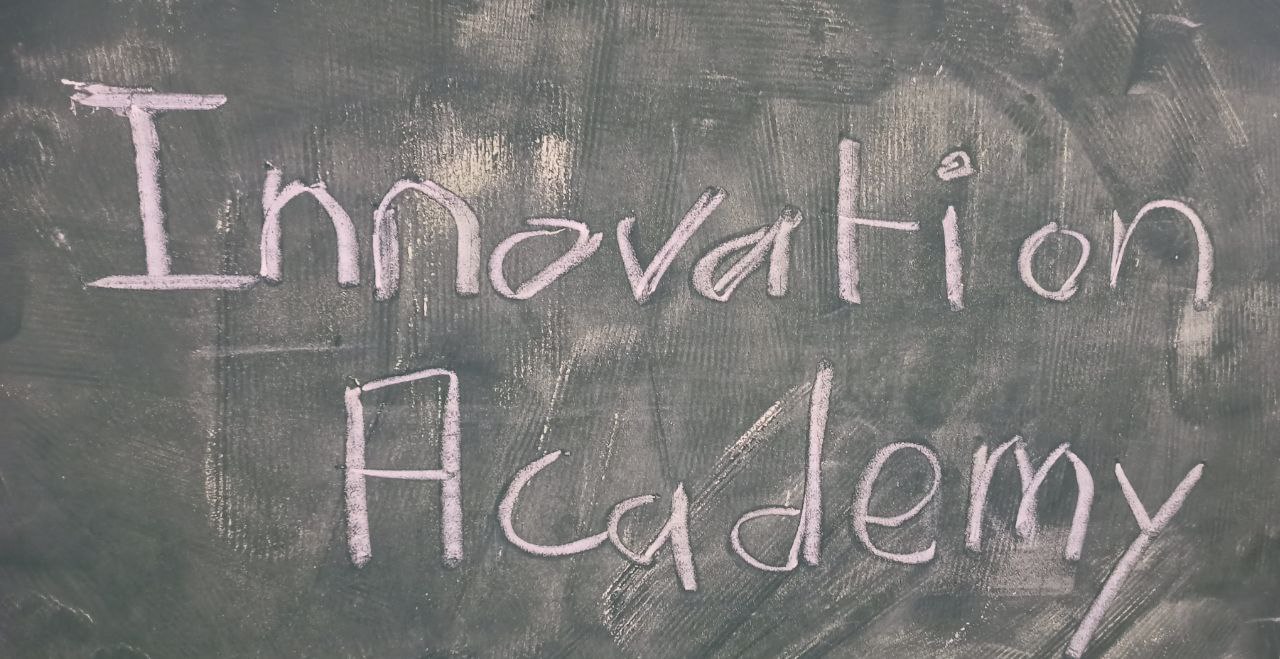 Innovation
Academy